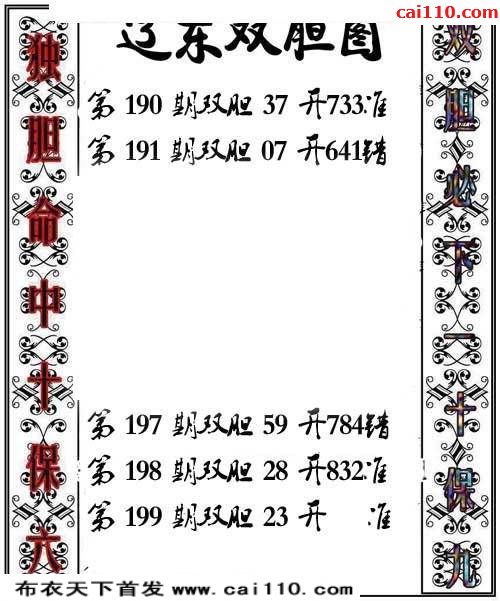 cai110.com
辽东双胆图
独胆命中十保六
第 190 期双胆 37 开733准
第 191 期双胆 07 开641错
第 197 期双胆 59 开784错
第 198 期双胆 28 开832准
第 199 期双胆 23 开 准
双胆必下一十保九
布衣天下首发 www.cai110.com